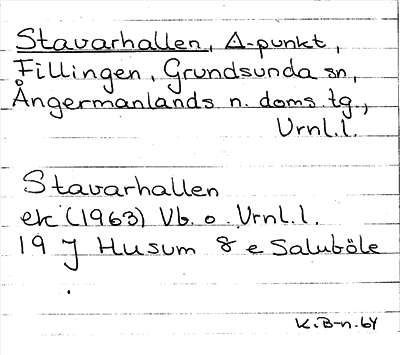 Stavarhallen, Δ-punkt,
Fillingen, Grundsunda sn,
Ångermanlands n. doms.tg.,
Vrnl.l.
Stavarhallen
ek (1963) Vb. o. Vrnl.l.
19 J Husum 8 e Saluböle
K.B-n. 64